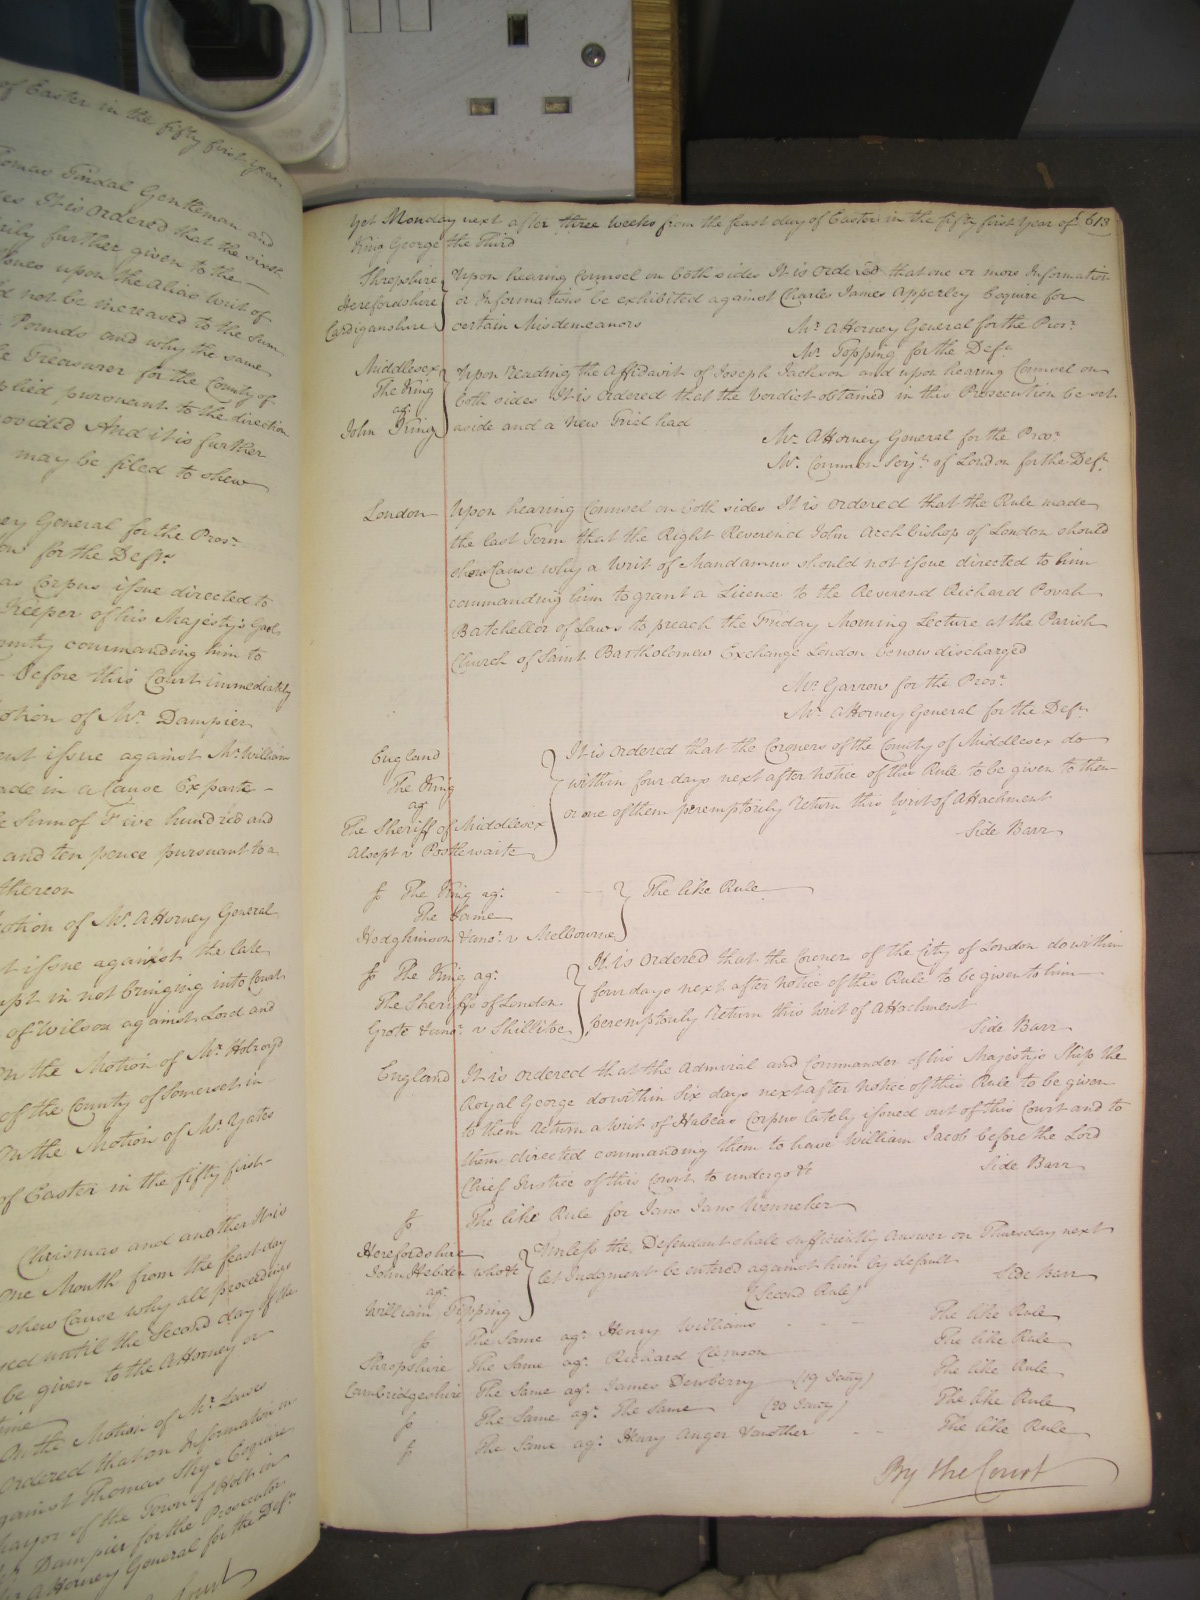 of Easter in the fifty first year
Thomas Tindal Gentleman and
It is ordered that the first
further given to the
upon the alias writ of
not be increased to the Sum
Pounds and why the same
Treasurer for the County of
pursuant to the direction
And it is further
may be filed to shew
General for the Pros.r
for the Deft.
Corpus issue directed to
Keeper of his Majesty's Gaol
commanding him to
before this Court immediately
of Mr. Dampier
issue against Mr. William
made in a Cause Ex parte
Sum of Five hundred and
and ten pence pursuant to a
thereon
Motion of Mr. Attorney General
issue against the late
in not bringing into Court
of Wilson against Lord and
On the Motion of Mr. Holroyd
of the County of Somerset in
On the Motion of Mr. Yates
of Easter in the fifty first
Christmas and another It is
One Month from the feast day
shew Cause why all proceedings
until the Second day of the
be given to the Attorney or
On the Motion of Mr. Lawes
Ordered that an Information or
against Thomas Skye Esquire
Mayor of the Town of Holt in
Dampier for the Prosecutor
Attorney General for the Deft.
Court
Yet Monday next after three weeks from the feast day of Easter in the fifty first Year of 613
King George the Third
Shropshire
Herefordshire
Cardiganshire
Upon hearing Counsel on both sides It is ordered that one or more Information
or Informations be exhibited against Charles James Apperley Esquire for
certain Misdemeanors
Mr. Attorney General for the Pros.r
Mr. Topping for the Deft.
Middlesex
The King
ag.t
John King
Upon reading the Affidavit of Joseph Jackson and upon hearing Counsel on
both sides It is ordered that the Verdict obtained in this Prosecution be set
aside and a new Trial had
Mr. Attorney General for the Pros.r
Mr. Common Serj.t of London for the Deft.
London
Upon hearing Counsel on both sides It is ordered that the Rule made
the last Term that the Right Reverend John Arch bishop of London should
shew Cause why a Writ of Mandamus should not issue directed to him
commanding him to grant a Licence to the Reverend Richard Povah
Batchellor of Laws to preach the Friday Morning Lecture at the Parish
Church of Saint Bartholomew Exchange London be now discharged
Mr. Garrow for the Pros.r
Mr. Attorney General for the Deft.
England
The King
ag.t
The Sheriff of Middlesex
Alsept v Postlewaite
It is ordered that the Coroners of the County of Middlesex do
within four days next after notice of this Rule to be given to them
or one of them peremptorily return this Writ of Attachment
Side Barr
fs The King ag.t
The Same
Hodgkinson & ano.r v Melbourne
The like Rule
fs The King ag.t
The Sheriffs of London
Grote & ano.r v Skillibee
It is ordered that the Coroner of the City of London do within
four days next after notice of this Rule to be given to him
peremptorily return this Writ of Attachment
Side Barr
England
It is ordered that the Admiral and Commander of his Majesty's Ship the
Royal George do within Six days next after notice of this Rule to be given
to them return a writ of Habeas Corpus lately issued out of this Court and to
them directed commanding them to have William Jacob before the Lord
Chief Justice of this Court to undergo &c
Side Barr
fs
The like Rule for Jans Jans Wenneker
Herefordshire
John Hebden who &c
ag.t
William Topping
Unless the Defendant shall sufficiently answer on Thursday next
let Judgment be entered against him by default
(Second Rule)
Side Barr
fs The Same ag.t Henry Williams The like Rule
Shropshire The Same ag.t Richard Clemson The like Rule
Cambridgeshire The Same ag.t James Dewberry (19 Jany) The like Rule
fs The Same ag.t The Same (20 Jany) The like Rule
fs The Same ag.t Henry Anger & another The like Rule
By the Court